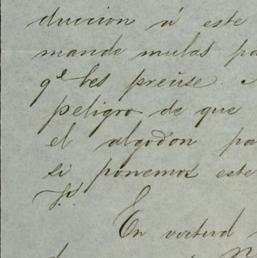 duccion á este
mande mulas pa
qe les precise.
peligro de que
el algodon pa
si ponemos este
En virtud